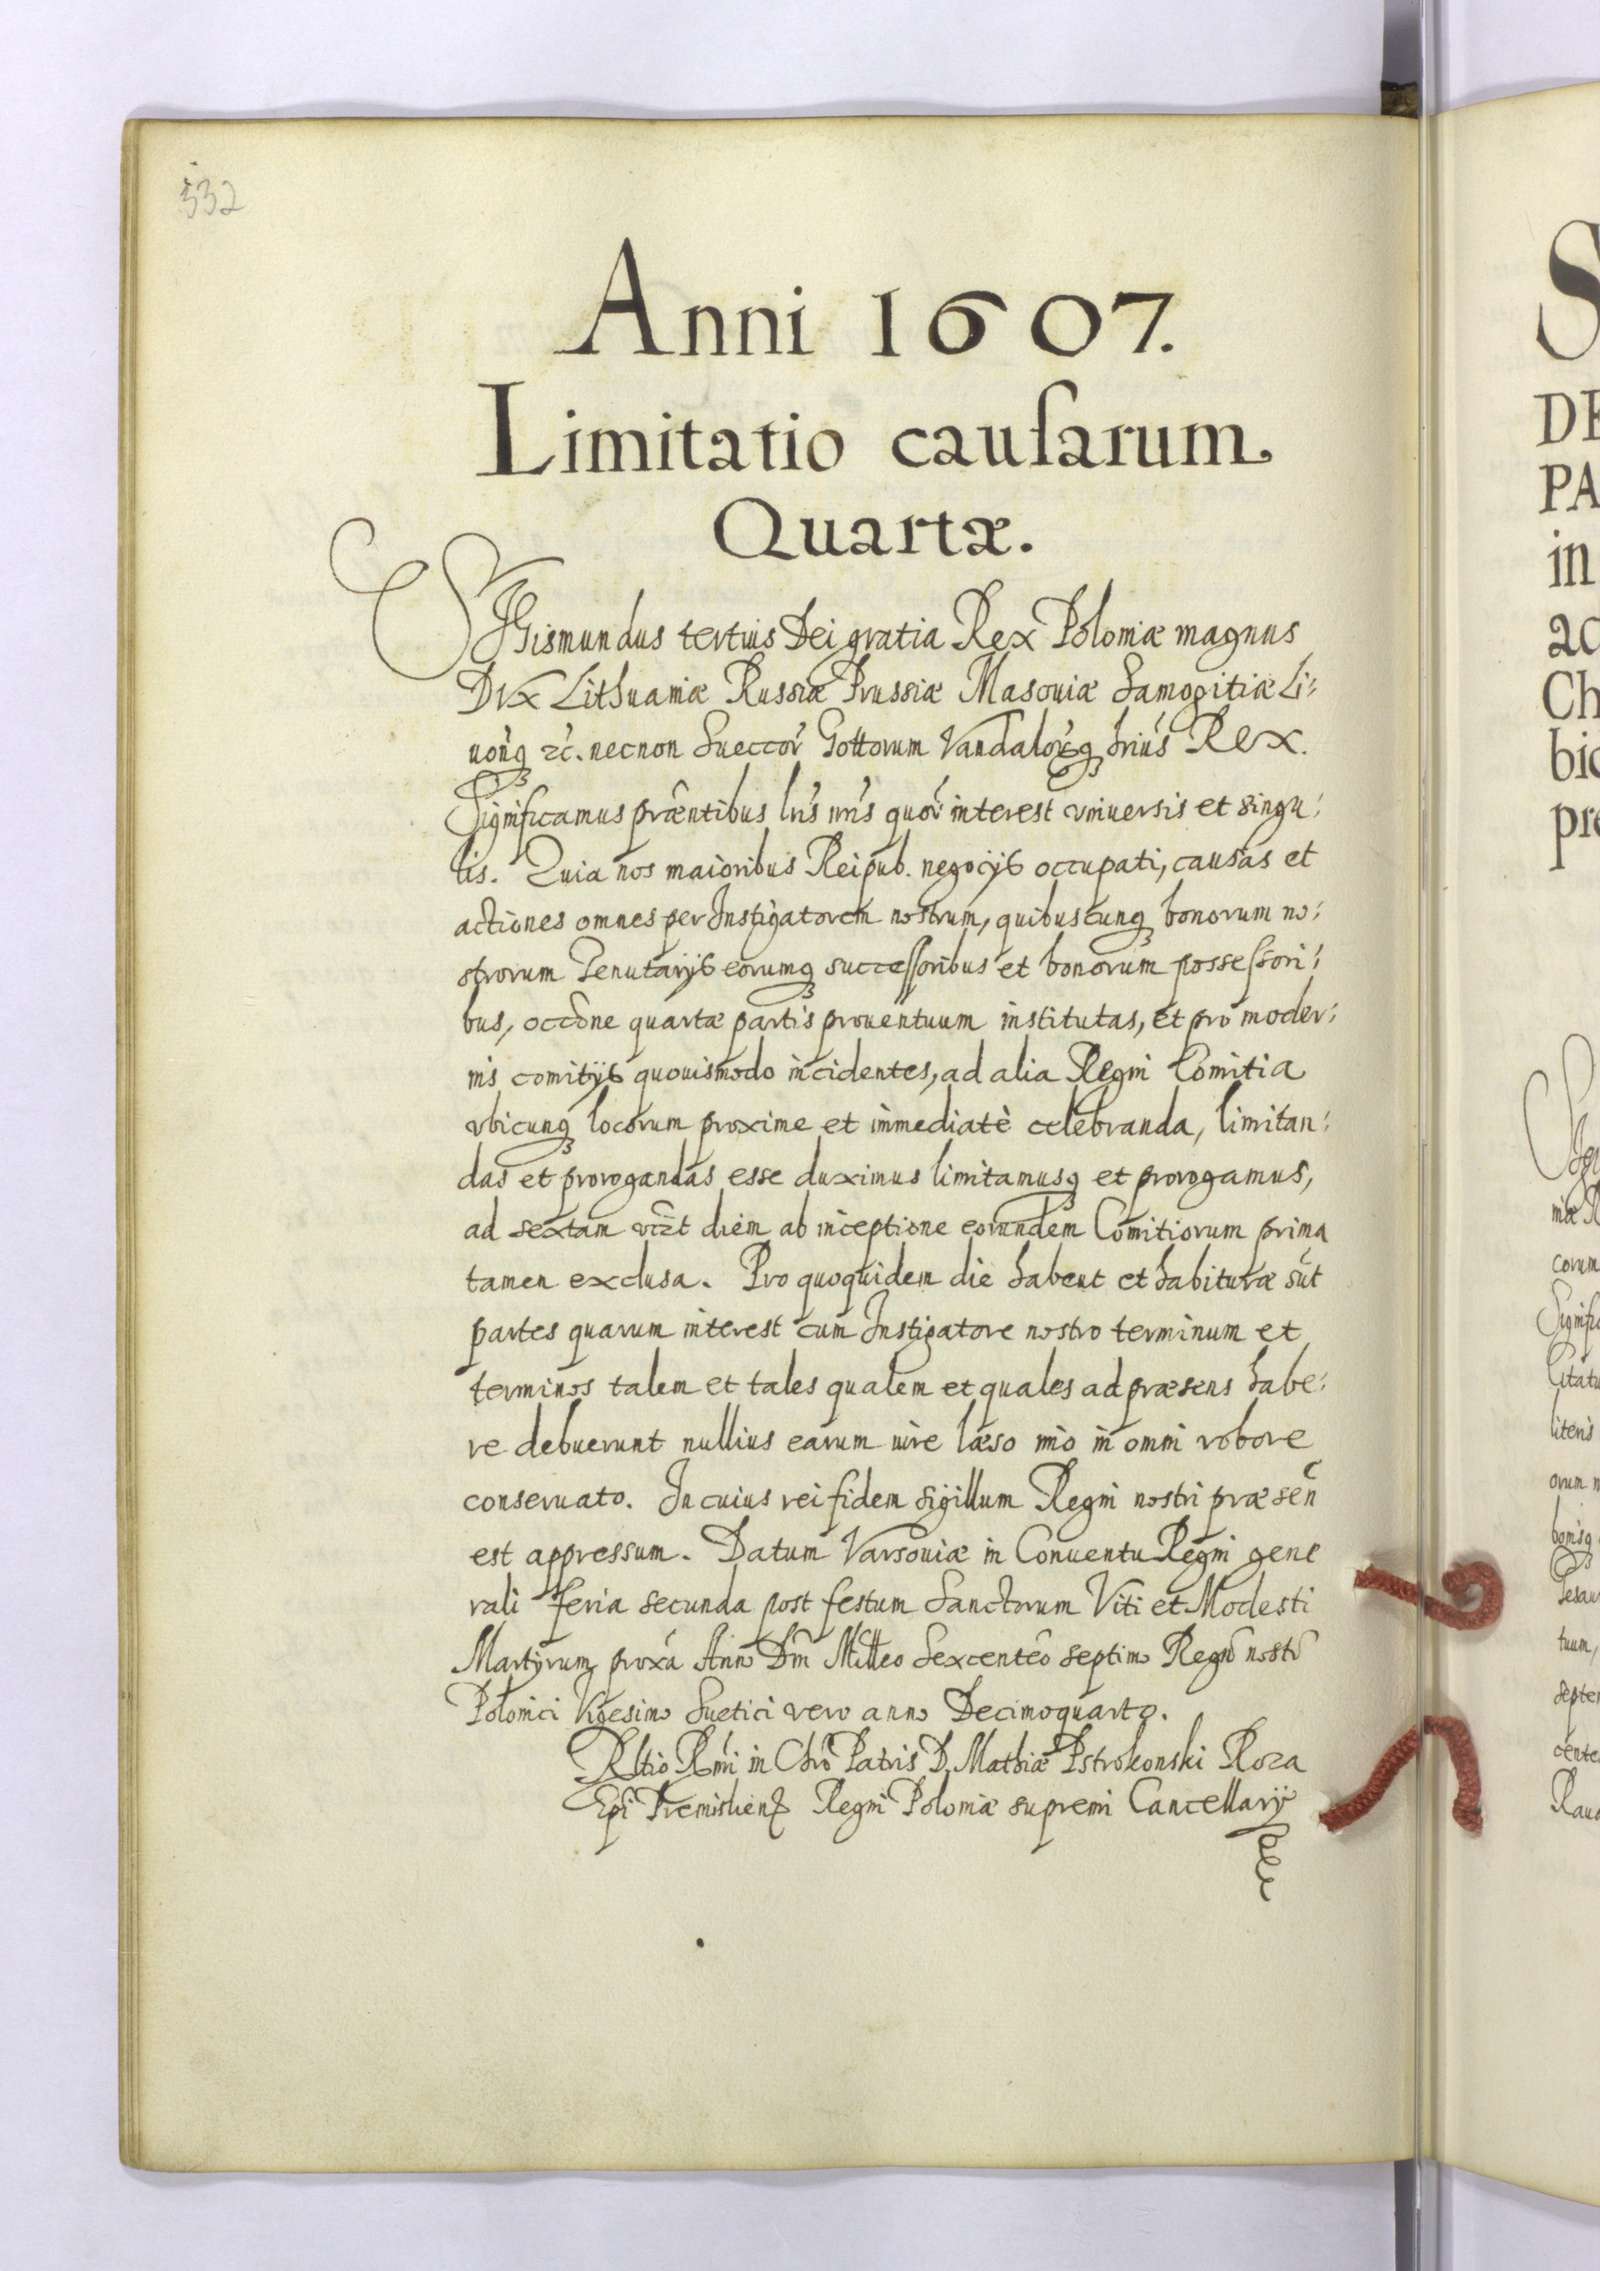 332
Anni 1607.
Limitatio cauſarum
Quartæ.
SIGismundus tertius Dei gratia Rex Poloniæ magnus
Dux Lithuaniæ Russiæ Prussiæ Masouiæ Samogitiæ Li:
uoñq ꝛc̃. necnon Sueccor̃ Gottorum Vandalor̃q hriũs Rex.
Significamus præñtibus lrĩs nrĩs quor̃ interest vniuersis et singu:
lis. Quia nos maioribus Reipub. negocijs occupati, causas et
actiones omnes per Instigatorem nostrum, quibuscunq bonorum no:
strorum Tenutarijs eorumq succeſſoribus et bonorum posseſsori:
bus, occõne quartæ partis prouentuum institutas, et pro moder:
nis comitijs quouismodo incidentes, ad alia Regni Comitia
vbicunq locorum proxime et immediatè celebranda, limitan:
das et prorogandas esse duximus limitamusq et prorogamus,
ad sextam vizt diem ab inceptione eorundem Comitiorum prima
tamen exclusa. Pro quoquidem die habent et habituræ sũt
partes quarum interest cum Instigatore nostro terminum et
terminos talem et tales qualem et quales ad præsens habe:
re debuerunt nullius earum iure læso imò in omni robore
conseruato. In cuius rei fidem sigillum Regni nostri præseñ
est appressum. Datum Varsouiæ in Conuentu Regni gene
rali feria secunda post festum Sanctorum Viti et Modesti
Martyrum proxã Anno Dñi Milleo Sexcenteõ septimo Regnõ nostrõ
Polonici Vigesimo Suetici vero anno Decimoquarto.
Rltio Rmi in Chrõ Patris D. Mathiæ Pstrokonski Roza
Epi Premislienꝭ Regni Poloniæ supremi Cancellarij
S
DE
PA
in
ac
Ch
bic
pre
niæ R
corum
Signific
Citatu
literis
orum n
bonisq
tuum,
septem
cente
Raua